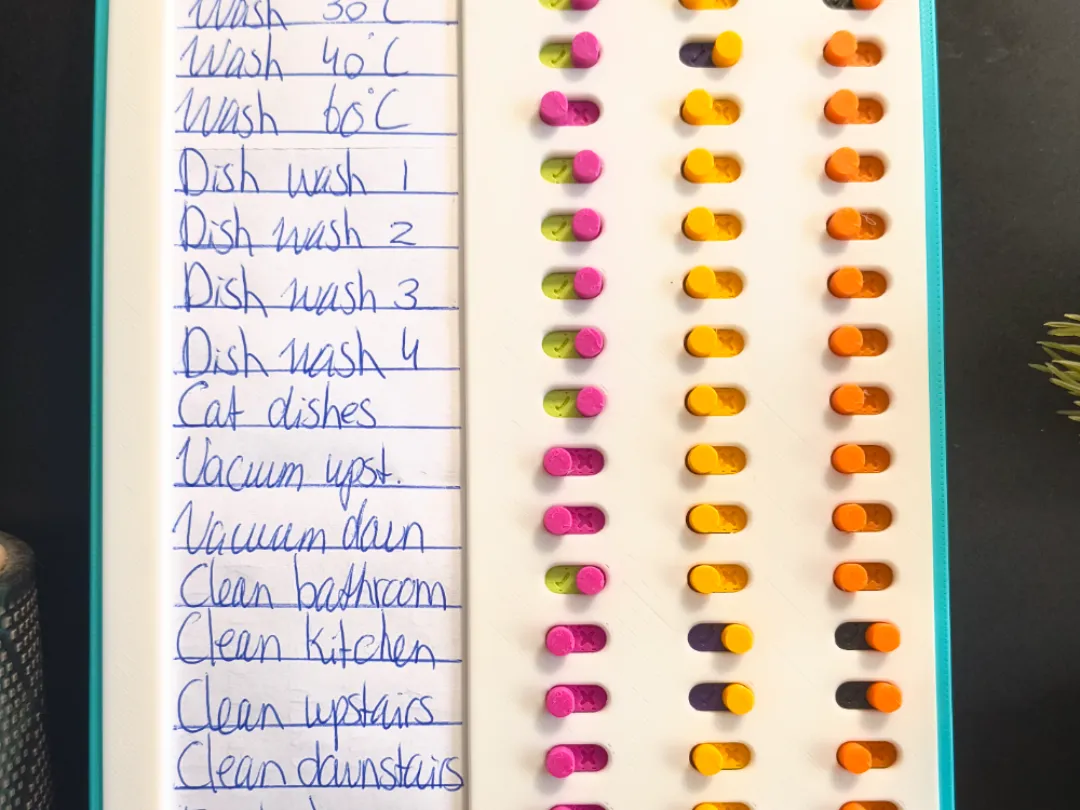 Wash 30°C
Wash 40°C
Wash 60°C
Dish wash 1
Dish wash 2
Dish wash 3
Dish wash 4
Cat dishes
Vacuum upst.
Vacuum down
Clean bathroom
Clean kitchen
Clean upstairs
Clean downstairs